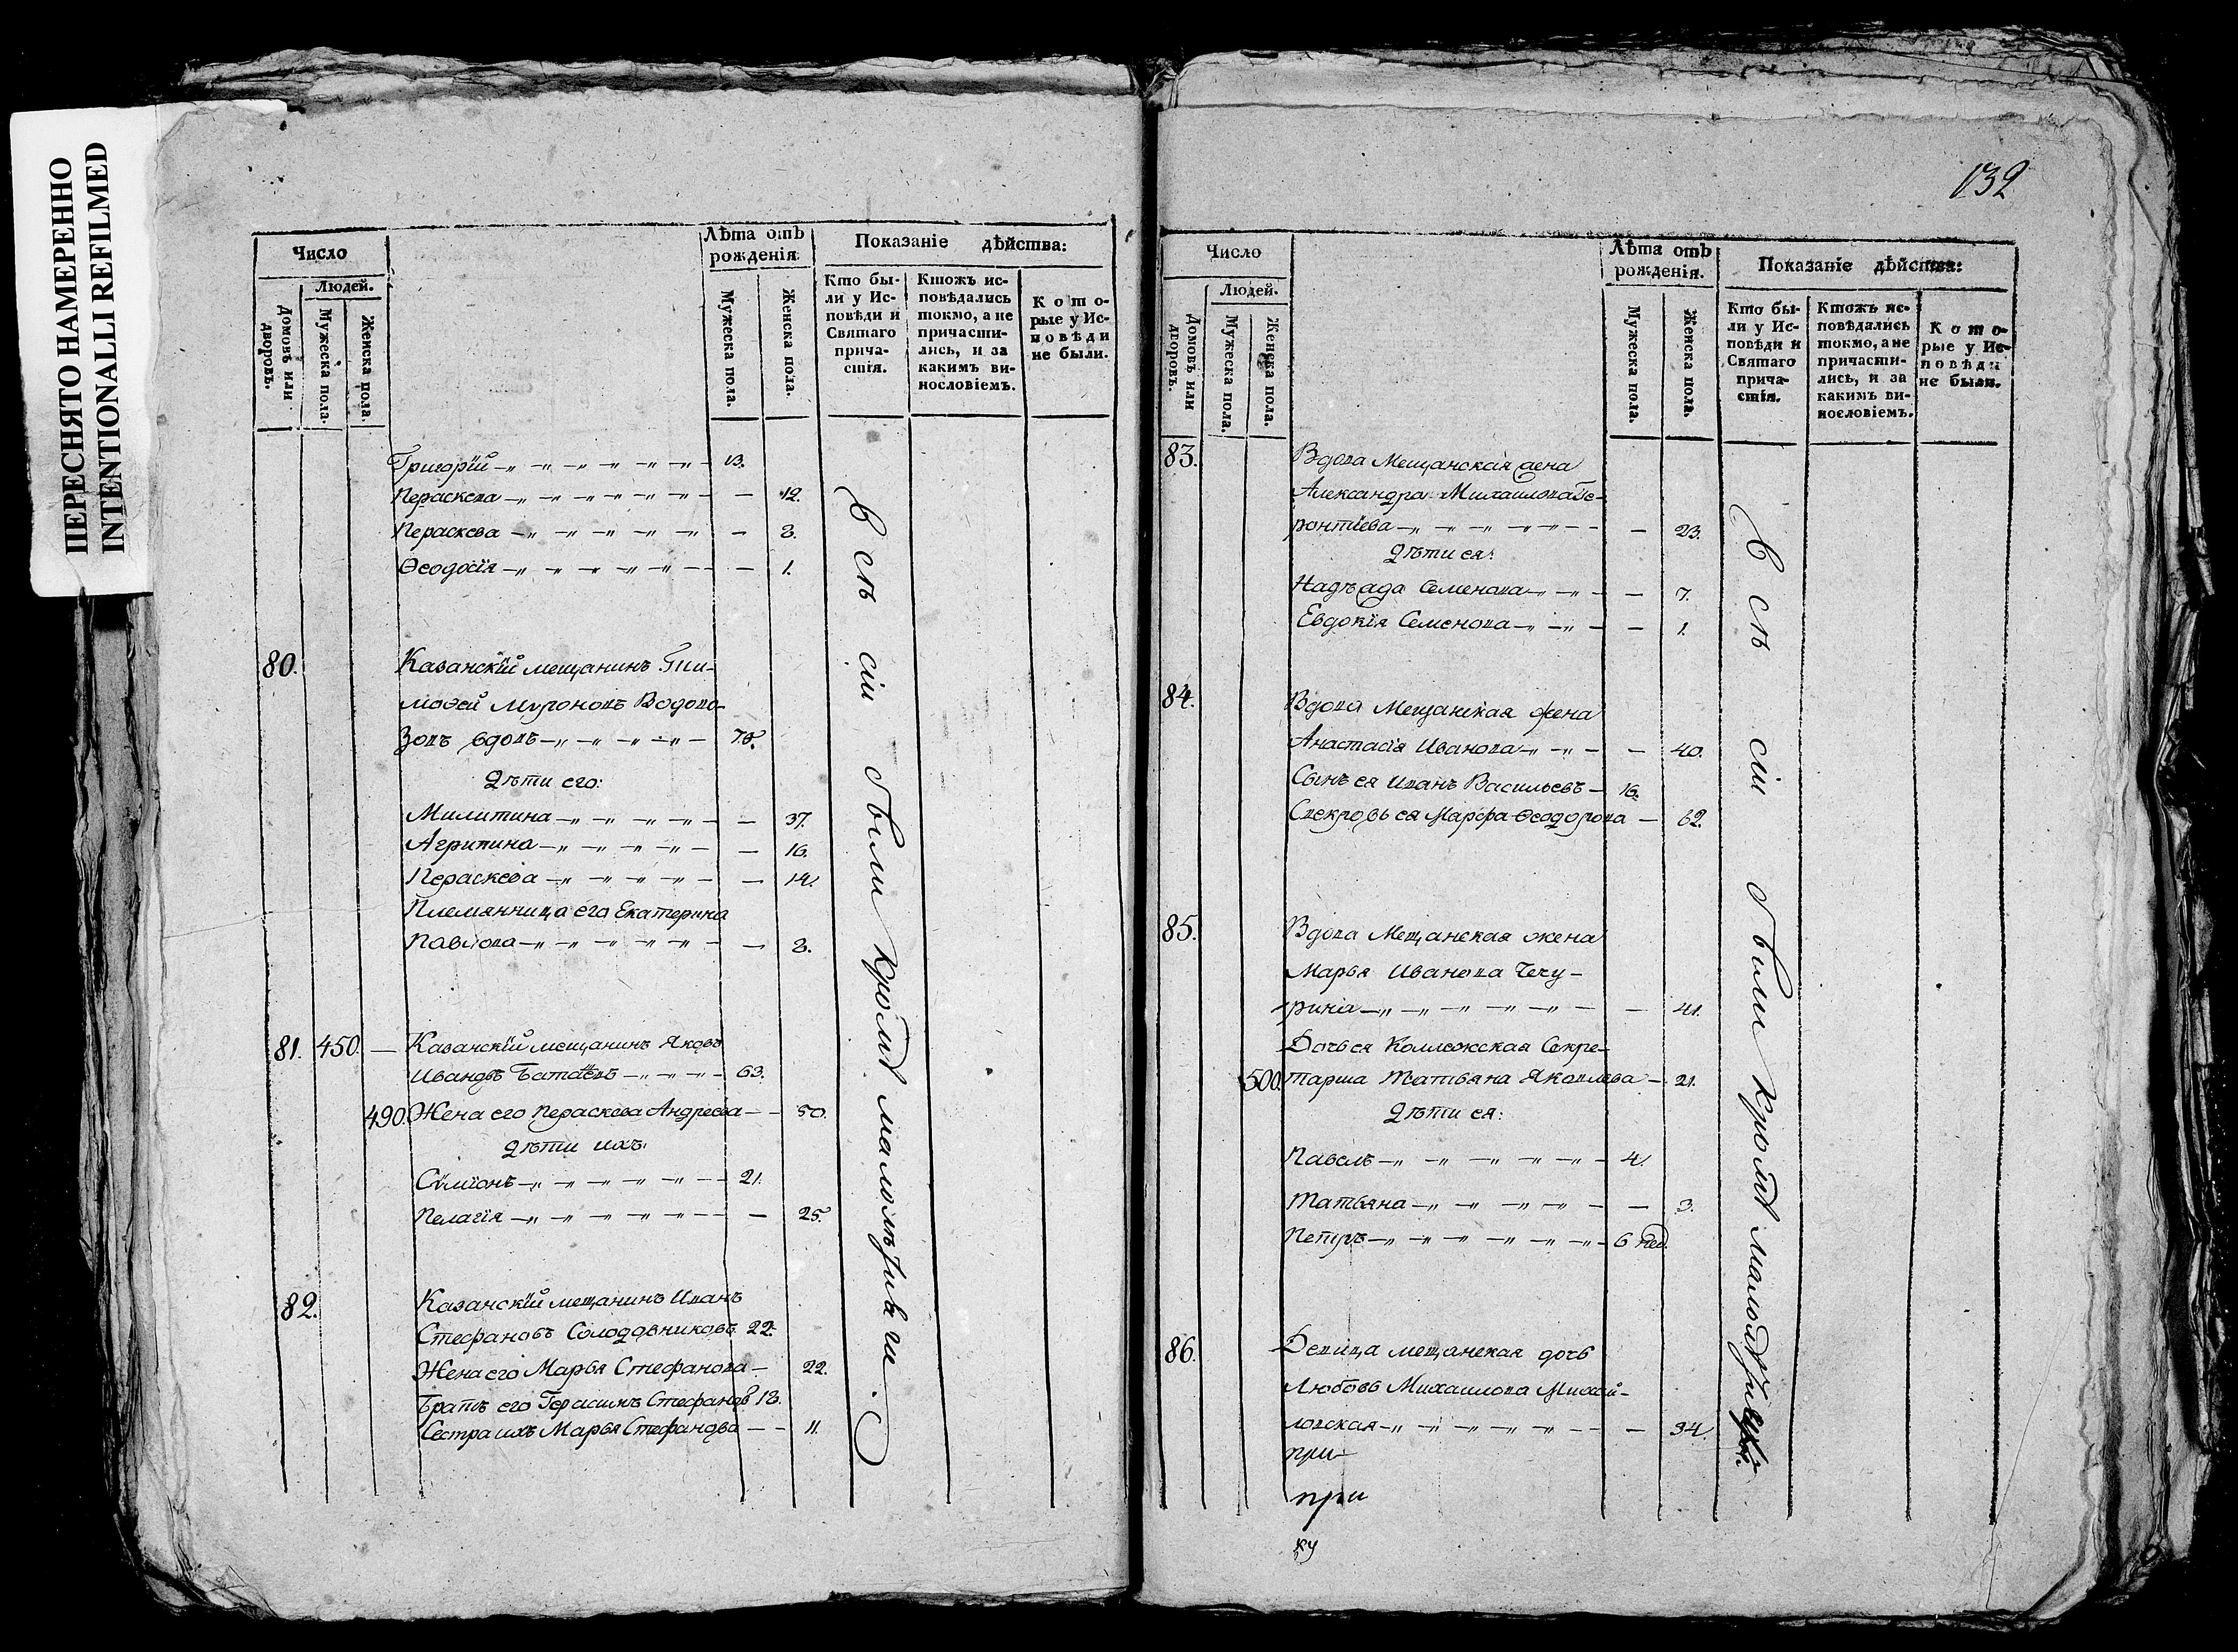 ПЕРЕСНЯТО НАМЕРЕННО
INTENTIONALLI REFILMED
Число
Людей.
Домовъ или дворовъ.
Мужеска пола.
Женска пола.
Лѣта отъ
рожденія
Мужеска пола.
Женска пола.
Показаніе дѣйства:
Кто бы-
ли у Ис-
повѣди и
Святаго
прича-
стія.
Ктожъ ис-
повѣдались
токмо, а не
причасти-
лись, и за
какимъ ви-
нословіемъ.
Кото-
рые у Ис-
повѣди
не были.
Григорій 13.
Пераскева — 12.
Пераскева — 8.
Ѳеодосія — 1.
80. Казанскій мещанинъ Тим-
моѳей Мѵроновъ Водово-
зовъ вдовъ
Дѣти его:
Милитина — 37.
Агрипина — 16.
Пераскева — 14.
Племянница его Екатерина
Павлова — 8.
81. 450. — Казанскій мещанинъ Яковъ
Ивановъ 63.
490. Жена его Пераскева Андреева — 50.
Дѣти ихъ:
Сѵміонъ 21.
Пелагія — 25.
82. Казанскій мещанинъ Иванъ
Стефановъ Солодовниковъ 22.
Жена его Марья Стефанова — 22.
Братъ его Герасимъ Стефановъ 18.
Сестра ихъ Марья Стефанова — 11.
Всѣ сіи были кромѣ малолѣтнихъ
132
Число
Людей.
Домовъ или дворовъ.
Мужеска пола.
Женска пола.
Лѣта отъ
рожденія.
Мужеска пола.
Женска пола.
Показаніе дѣйства:
Кто бы-
ли у Ис-
повѣди и
Святаго
прича-
стія.
Ктожъ ис-
повѣдались
токмо, а не
причасти-
лись, и за
какимъ ви-
нословіемъ.
Кото-
рые у Ис-
повѣди
не были.
83. Вдова Мещанская жена
Александра Михаилова Ге-
ронтіева — 23.
Дѣти ея:
Надѣжда Семенова — 7.
Евдокія Семенова — 1.
84. Вдова Мещанская жена
Анастасія Иванова — 40.
Сынъ ея Иванъ Васильевъ — 16.
Свекровь ея Марѳа Ѳеодорова — 62.
85. Вдова Мещанская жена
Марья Иванова Чечу-
рина — 41.
Дочь ея Коллежская Секре-
500. тарша Татьяна Яковлева — 21.
Дѣти ея:
Павелъ 4.
Татьяна — 3.
Петръ 6 нед.
86. Девица мещанская дочь
Любовь Михаилова Михай-
ловская — 34.
при
при
ку
Всѣ сіи были кромѣ малолѣтнихъ.